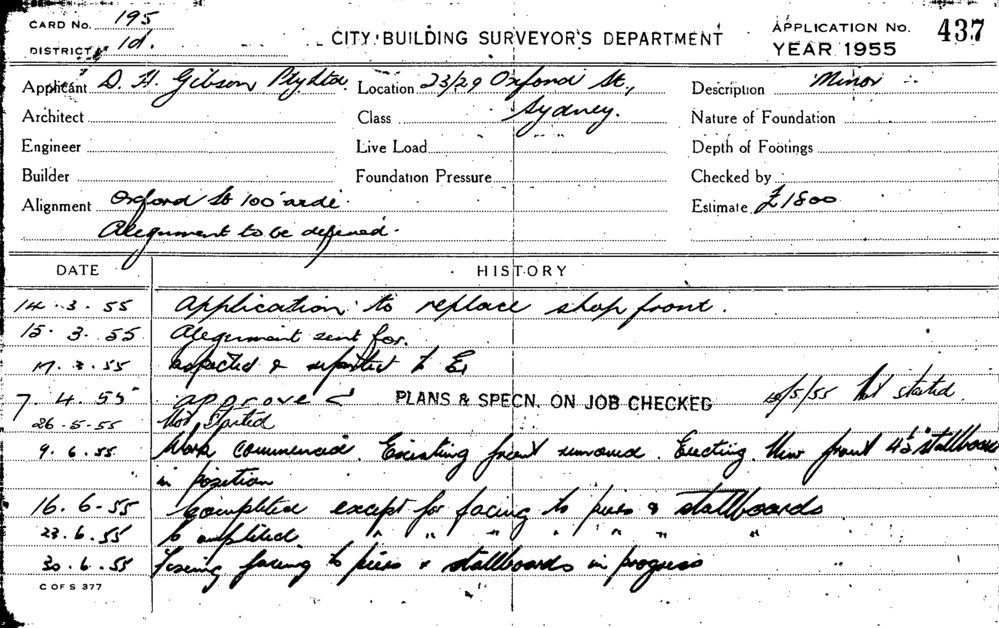 CARD No. 195
DISTRICT 1d.
CITY BUILDING SURVEYOR'S DEPARTMENT
APPLICATION No. 437
YEAR 1955
Applicant D. H. Gibson Pty Ltd. Location 23/29 Oxford St., Description Minor
Architect Class Sydney. Nature of Foundation
Engineer Live Load Depth of Footings
Builder Foundation Pressure Checked by
Alignment Oxford St 100' Estimate £1800
Alignment to be defined.
DATE HISTORY
14.3.55 Application to replace shop front.
15.3.55 Alignment sent for.
17.3.55 Inspected & reported to
7.4.55 approved PLANS & SPECN. ON JOB CHECKED /5/55 Not started.
26-5-55 Not Started
9.6.55 Work commenced. Existing front removed. Erecting New front & stallboard
in position
16.6.55 Completed except for facing to piers & stallboards
23.6.55 Completed " " " " " " "
30.6.55 Fixing facing to piers & stallboards in progress
C OF S 377